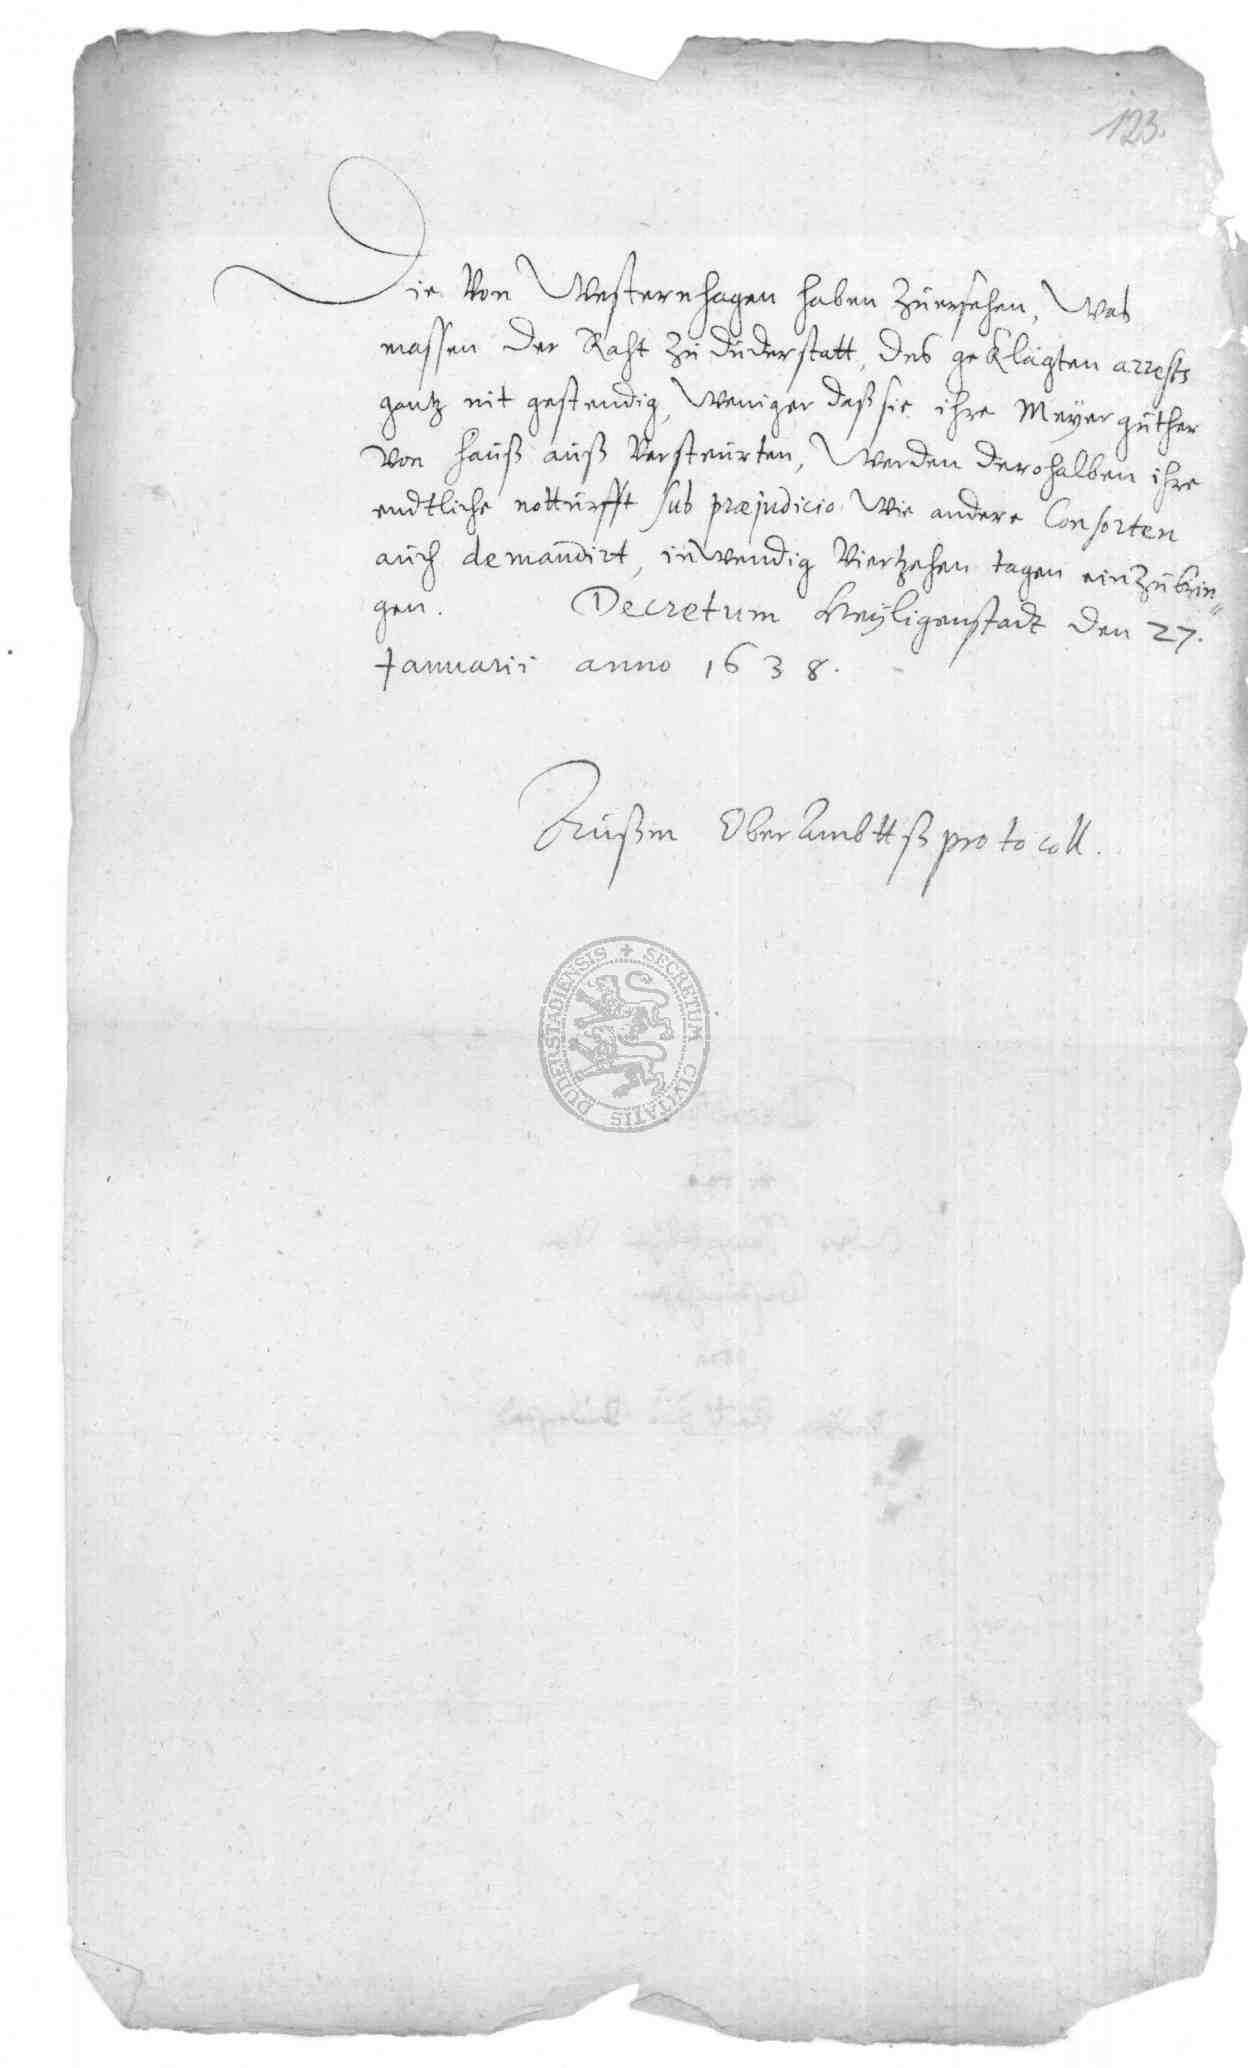 123.
Die Von Westernhagen haben Zuersehen, Was
massen der Raht Zu duderstatt, des geklagten arrests
gantz nit gestendig, Weniger daß sie ihre Meyergüther
Von hauß auß Versteurten, Werden derohalben ihre
endtliche notturfft sub præjudicio Wie andere Consorten
auch demandirt, inwendig Viertzehen tagen einZubrin„
gen. Decretum Heyligenstadt den 27.
Januarii anno 1638.
Außm OberAmbttß protocoll.
SECRETUM CIVITATIS DUDERSTADIENSIS